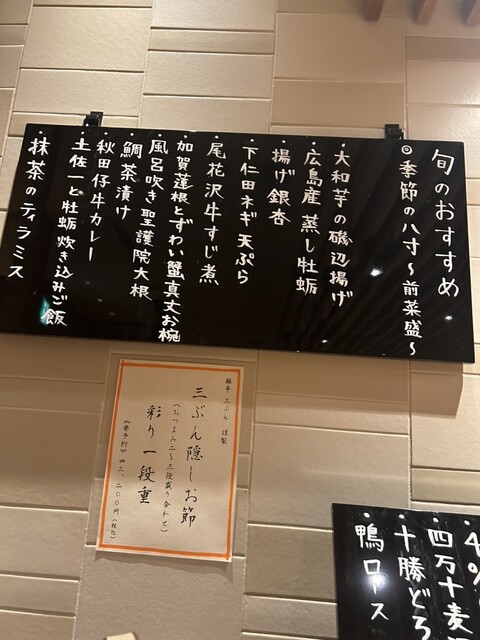 旬のおすすめ
◎季節の八寸～前菜盛～
・大和芋の磯辺揚げ
・広島産 蒸し牡蛎
・揚げ銀杏
・下仁田ネギ 天ぷら
・尾花沢牛すじ煮
・加賀蓮根とずわい蟹真丈お椀
・風呂吹き聖護院大根
・鯛茶漬け
・秋田仔牛カレー
・土佐一と牡蛎炊き込みご飯
・抹茶のティラミス
三ぶん隠しお節
彩り一段重
四万十麦
十勝どろ
鴨ロース